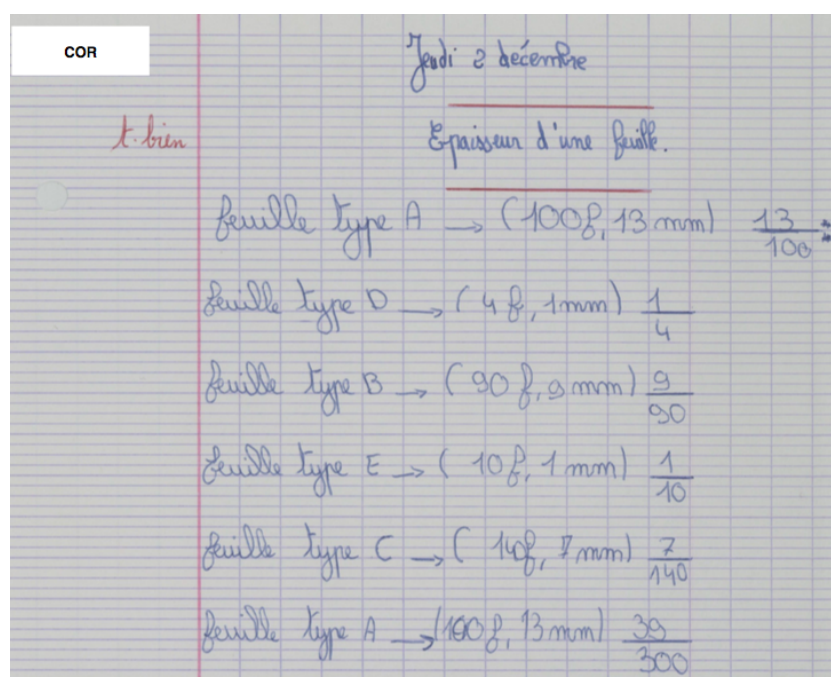 COR
Jeudi 2 décembre
t. bien
Epaisseur d'une feuille.
feuille type A → (100f, 13 mm) 13/100
feuille type D → (4 f, 1mm) 1/4
feuille type B → (90 f, 9 mm) 9/90
feuille type E → (10 f, 1 mm) 1/10
feuille type C → (140f, 7 mm) 7/140
feuille type A → (100 f, 13 mm) 39/300